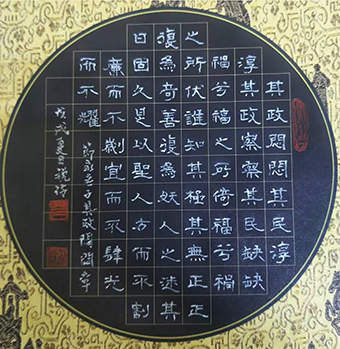 其政悶悶其民淳
淳其政察察其民缺缺
禍兮福之所倚福兮禍
之所伏誰知其極其無正正
復為奇善復為妖人之迷其
日固久是以聖人方而不割
廉而不劌直而不肆光
而不耀
戊戌夏月